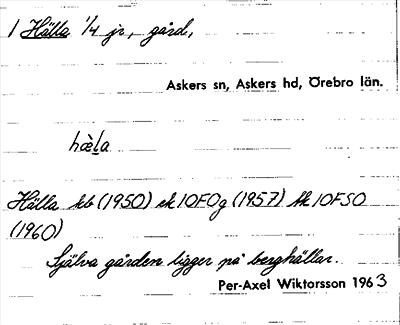 1 Hälla 1/4 jr, gård,
Askers sn, Askers hd, Örebro län.
hæ̀l̲a
Hälla kb (1950) ek 10F0g (1957) tk 10FSO
(1960)
Själva gården ligger på berghällar.
Per-Axel Wiktorsson 1963